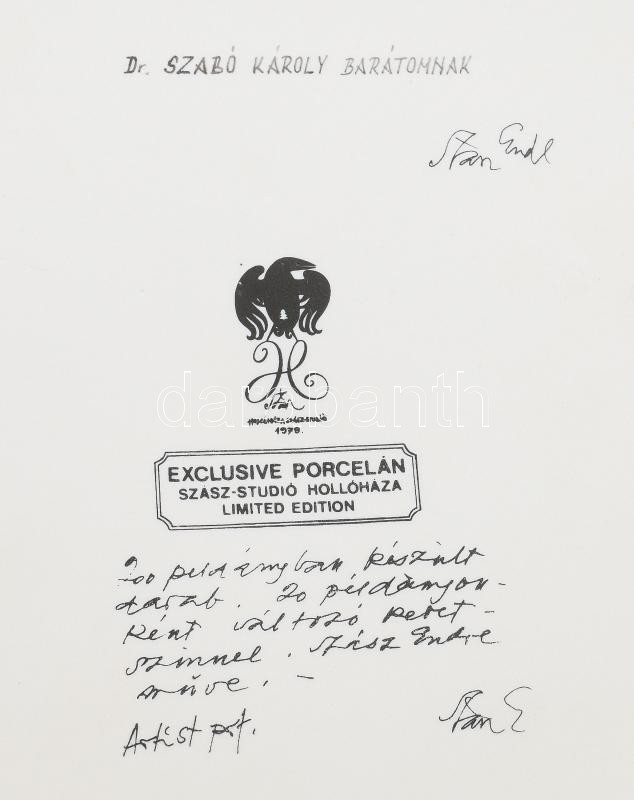 Dr. SZABÓ KÁROLY BARÁTOMNAK
Szász Endre
H
1979.
darabanth
EXCLUSIVE PORCELÁN
SZÁSZ-STUDIÓ HOLLÓHÁZA
LIMITED EDITION
200 példányban készült
darab. 20 példányon-
ként változó keret-
szinnel. Szász Endre
műve. –
Artist prf.
Szász E